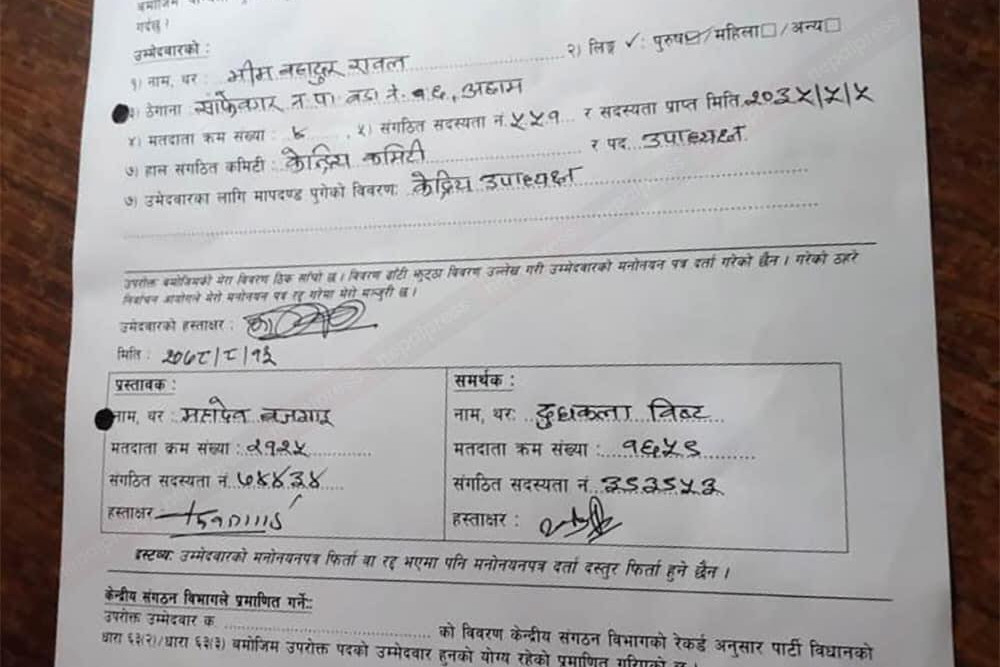 गर्दछु ।
उम्मेदवारको :
१) नाम, थर : भीम बहादुर रावल २) लिङ्ग ✓: पुरुष☑/महिला□/अन्य□
ठेगाना साँफेबगर न.पा. वडा नं. १६, अछाम
४) मतदाता क्रम संख्या : ५) संगठित सदस्यता नं. ५५१ र सदस्यता प्राप्त मिति २०३५/५/५
७) हाल संगठित कमिटी : केन्द्रिय कमिटी र पद उपाध्यक्ष
७) उमेदवारका लागि मापदण्ड पुगेको विवरण: केन्द्रिय उपाध्यक्ष
उपरोक्त बमोजिमको मेरा विवरण ठिक साँचो छ । विवरण ढाँटी झुट्ठा विवरण उल्लेख गरी उम्मेदवारको मनोनयन पत्र दर्ता गरेको छैन । गरेको ठहरे
निर्वाचन आयोगले मेरो मनोनयन पत्र रद्द गरेमा मेरो मञ्जुरी छ ।
उमेदवारको हस्ताक्षर :
मिति : २०७८/८/१३
प्रस्तावक : समर्थक :
नाम, थर : महादेव बजगाई नाम, थर: दुधकला विष्ट
मतदाता क्रम संख्या : २१२५ मतदाता क्रम संख्या : १६५९
संगठित सदस्यता नं. ७४४३४ संगठित सदस्यता नं. ३९३५९३
हस्ताक्षर हस्ताक्षर :
द्रस्टव्य: उम्मेदवारको मनोनयनपत्र फिर्ता वा रद्द भएमा पनि मनोनयनपत्र दर्ता दस्तुर फिर्ता हुने छैन ।
केन्द्रीय संगठन विभागले प्रमाणित गर्ने::
उपरोक्त उम्मेदवार क को विवरण केन्द्रीय संगठन विभागको रेकर्ड अनुसार पार्टी विधानको
धारा ६३(२)/धारा ६३(३) बमोजिम उपरोक्त पदको उम्मेदवार हुनको योग्य रहेको प्रमाणित गरिएको छ ।